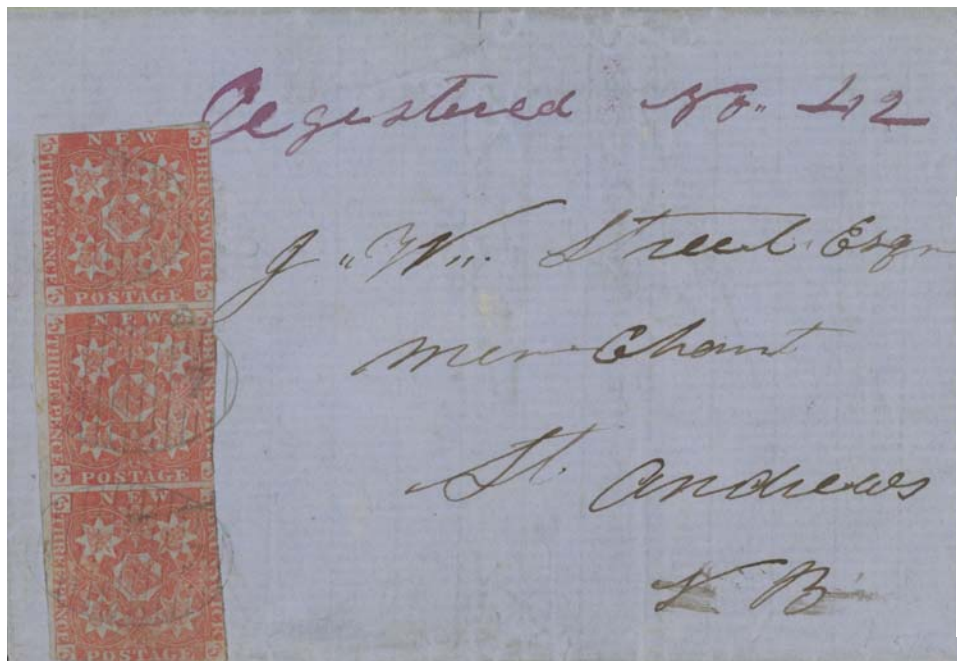 Registered No. 42
J. W. Street Esqr
Merchant
St. Andrews
N B
NEW
BRUNSWICK
THREE PENCE
POSTAGE
3
3
3
3
NEW
BRUNSWICK
THREE PENCE
POSTAGE
3
3
3
3
NEW
BRUNSWICK
THREE PENCE
POSTAGE